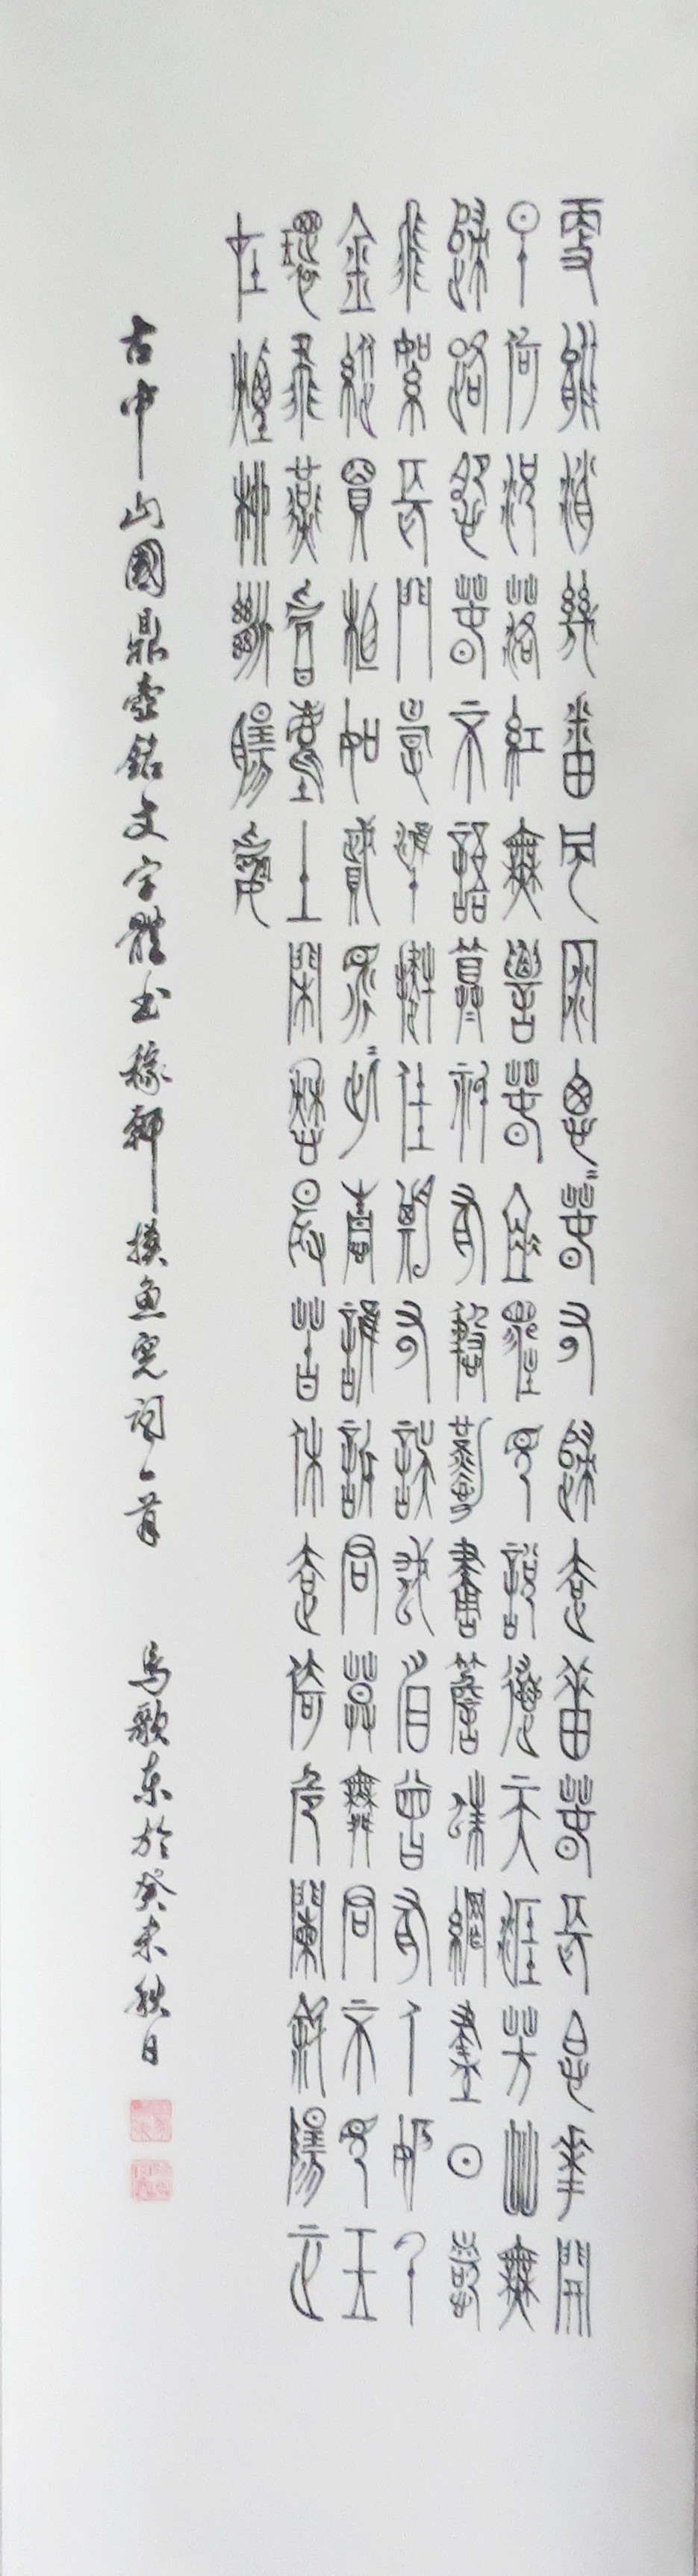 更能消幾番風雨匆匆春又歸去惜春長怕花開
早何況落紅無數春且住見說道天涯芳草無
歸路怨春不語算祇有殷勤畫簷蛛網盡日惹
飛絮長門事準擬佳期又誤蛾眉曾有人妒千
金縱買相如賦脈脈此情誰訴君莫舞君不見玉
環飛燕皆塵土閒愁最苦休去倚危闌斜陽正
在煙柳斷腸處
古中山國鼎壺銘文字體书稼軒摸魚兒詞一首 馬歌东於癸未秋日